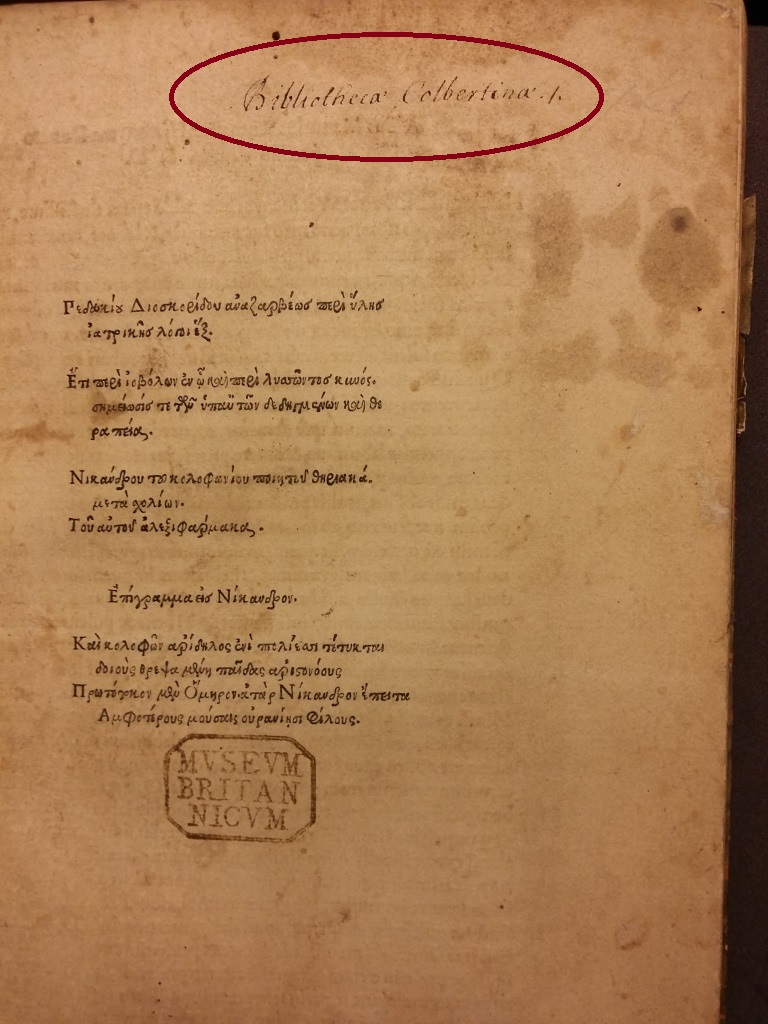 Bibliothecæ Colbertinæ.
Πεδακίου Διοσκορίδου αναζαρβέως περὶ ὕλης
ἰατρικῆς λόγοι ἕξ.
Ἔτι περὶ ἰοβόλων ἐν ᾧ καὶ περὶ λυσσῶντος κυνός.
σημείωσίς τε τῶν ὑπ' αὐτῶν δεδηγμένων καὶ θε
ραπεία.
Νικάνδρου τοῦ κολοφωνίου ποιητοῦ θηριακά.
μετὰ σχολίων.
Τοῦ αὐτοῦ ἀλεξιφάρμακα.
Ἐπίγραμμα εἰς Νίκανδρον.
Καὶ κολοφὼν αρίδηλος ἐνὶ πολίεσσι τέτυκται
δοιοὺς θρεψαμένη παῖδας αριστονόους
Πρωτότοκον μὲν Ὅμηρον. ἀτὰρ Νίκανδρον ἔπειτα
Αμφοτέρους μούσαις οὐρανίῃσι φίλους.
MVSEVM
BRITAN
NICVM